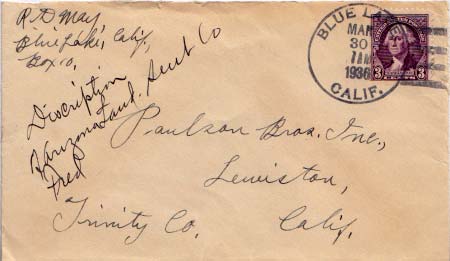 R D May,
Blue Lake, Calif,
Box 10,
Discription
Arizona Land. Sent Co
Fred
BLUE LAKE
MAR
30
7 AM
1936
CALIF.
3 3
Paulson Bros. Inc.,
Lewiston,
Trinity Co. Calif.